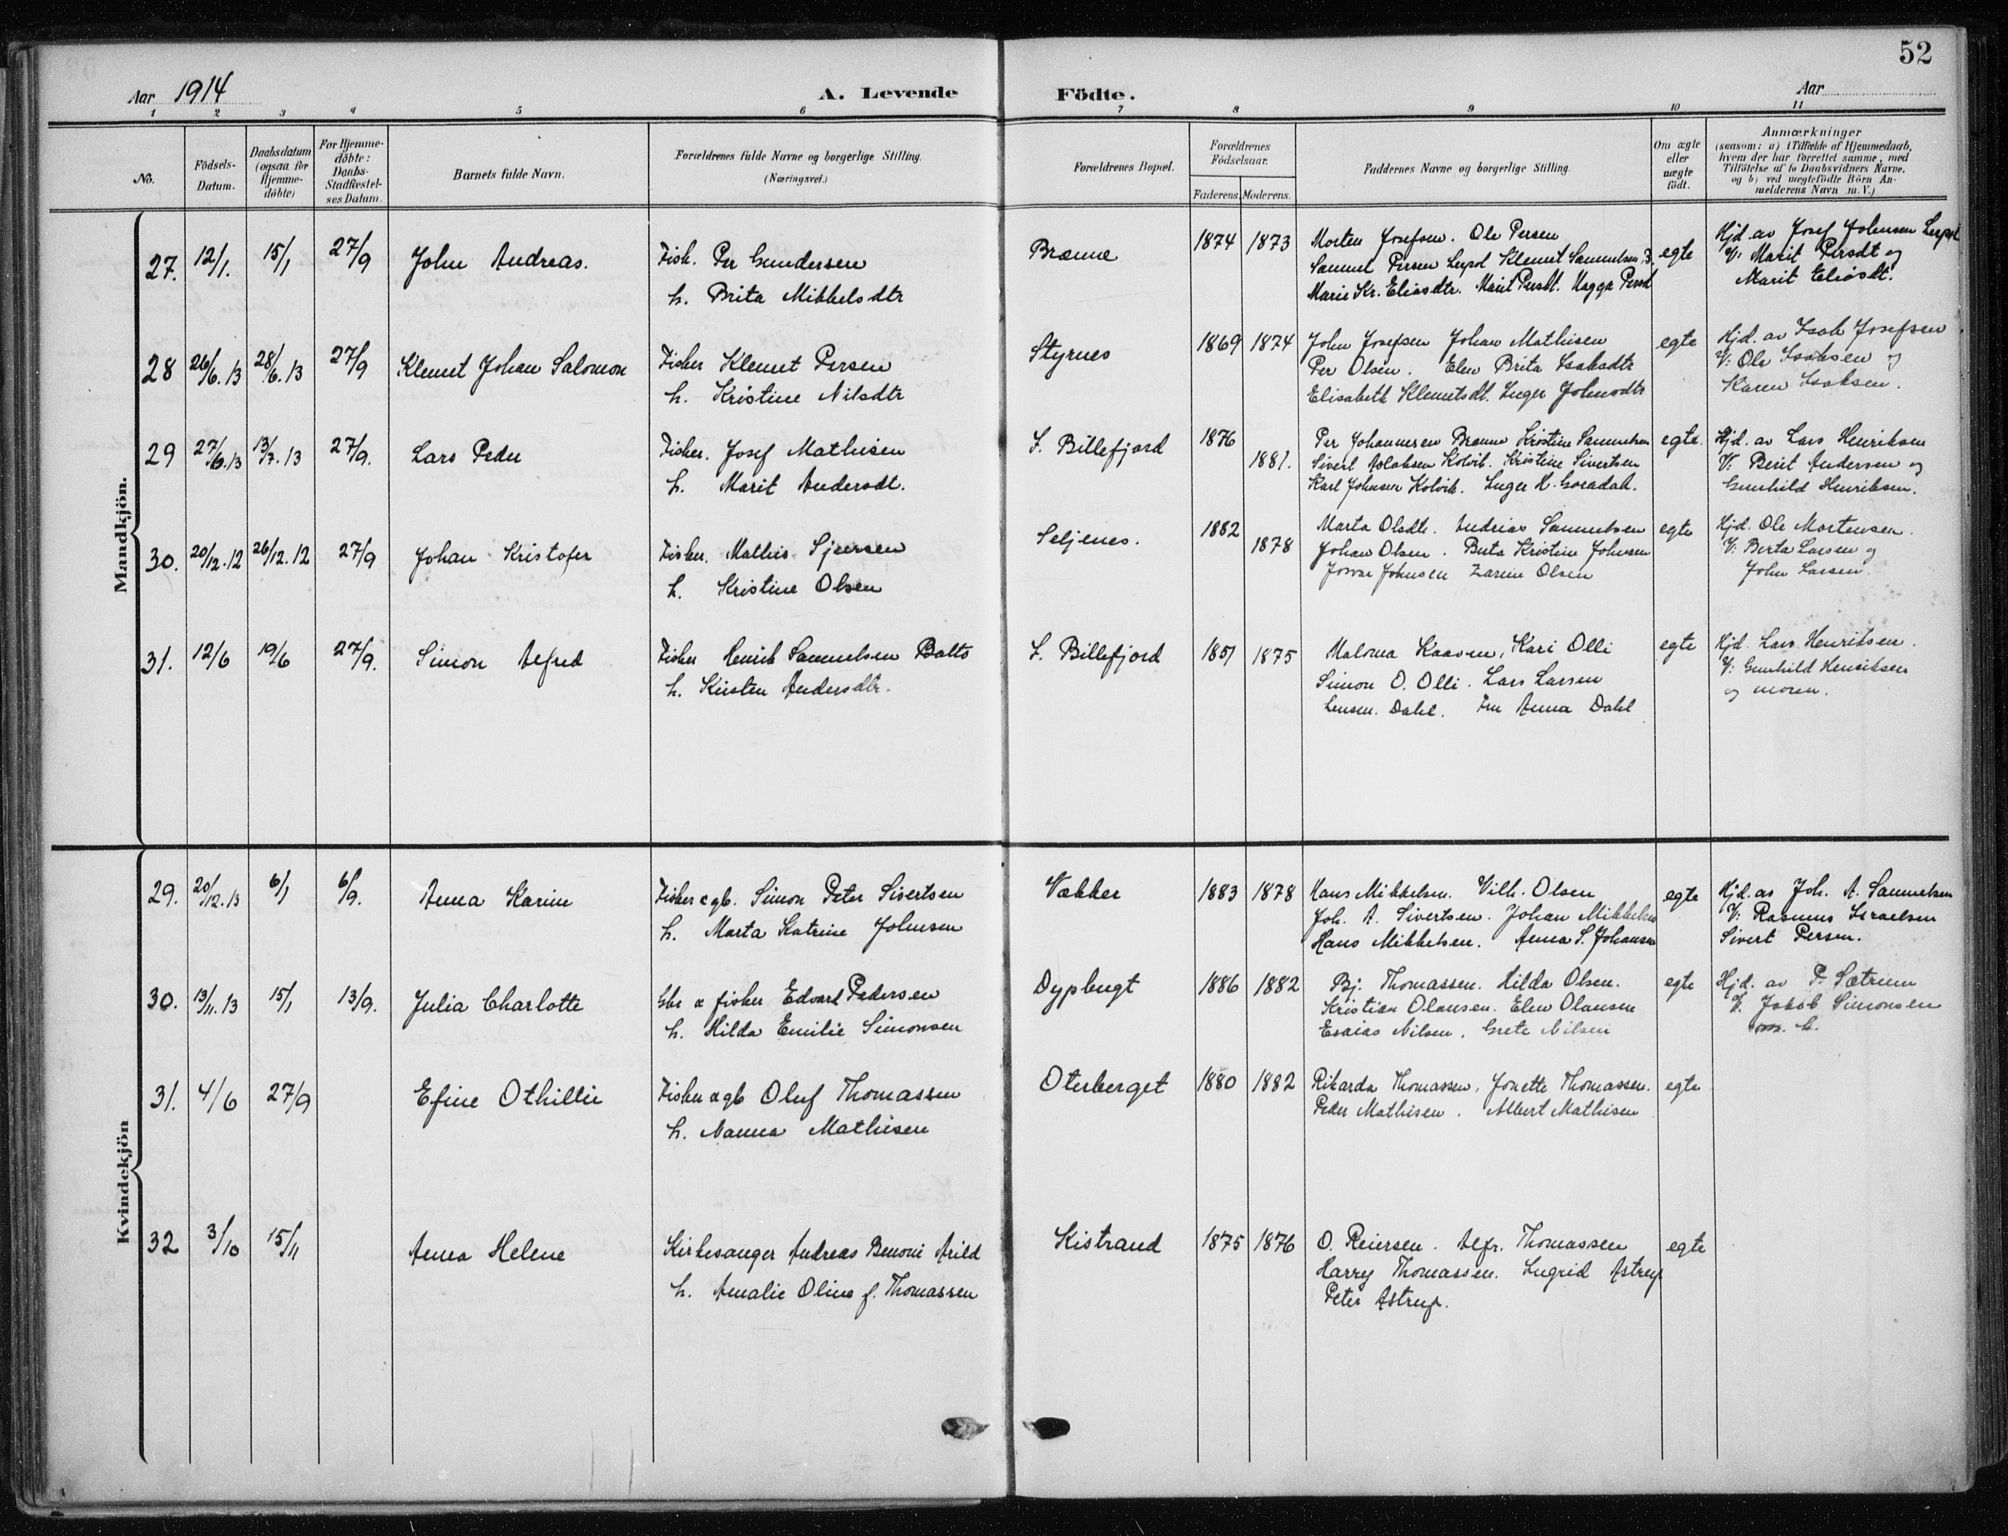 52
Aar 1914
A. Levende Födte.
Aar
1 2 3 4 5 6 7 8 9 10 11
No.
Födsels-Datum.
Daabsdatum (ogsaa for Hjemme-döbte)
For Hjemme-döbte: Daabs-Stadfæstel-ses Datum.
Barnets fulde Navn.
Forældrenes fulde Navne og borgerlige Stilling.
(Næringsvei.)
Forældrenes Bopæl.
Forældrenes Födselsaar.
Faderens. Moderens.
Faddernes Navne og borgerlige Stilling.
Om ægte eller uægte födt.
Anmærkninger
(saasom: a) i Tilfælde af Hjemmedaab,
hvem der har forrettet samme, med
Tilföielse af to Daabsvidners Navne,
og b) ved uægtefödte Börn An-
melderens Navn m. V.)
Mandkjön.
27. 12/1. 15/1 27/9 John Andreas. Fisk. Per Gundersen
h. Brita Mikkelsdtr
Brænna 1874 1873
Morten Josefsen. Ole Persen
Samuel Persen Leipol Klemet Samuelsen B.
Marie Kr. Eliasdtr. Marit Persdt. Magga Persd
egte
Hjd. av Josef Johnsen Leipol
V: Marit Persdt og
Marit Eliasdt.
28 26/6.13 28/6.13 27/9 Klemet Johan Salomon Fisker Klemet Persen
h. Kristine Nilsdtr
Styrnes 1869 1874
John Josefsen Johan Mathisen
Per Olsen. Elen Brita Isaksdtr
Elisabeth Klemetsdt. Inger Johnsdtr
egte
Hjd. av Isak Josefsen
V: Ole Isaksen og
Karen Isaksen.
29 27/6.13 13/7.13 27/9. Lars Peder Fisker. Josef Mathisen
h. Marit Andersdt.
S. Billefjord 1876 1881.
Per Johannesen Brenna Kristine Samuelsen
Sivert Aslaksen Kolvik. Kristine Sivertsen
Karl Johnsen Kolvik. Inger H.
egte.
Hjd. av Lars Henriksen
V: Berit Andersen og
Gunhild Henriksen.
30. 20/12.12 26/12.12 27/9 Johan Kristofer Fisker. Mathis
h. Kristine Olsen
Seljenes. 1882 1878
Marta Olsdtr. Andreas Samuelsen
Johan Olsen. Berta Kristine Johnsen
Johnsen Karine Olsen
egte
Hjd. Ole Mortensen.
V: Berta Larsen og
John Larsen.
31. 12/6 19/6 27/9. Simon Alfred Fisker Henrik Samuelsen Balto
h. Kirsten Andersdtr.
S. Billefjord 1851 1875
Malona Kaaven, Kari Olli
Simon O. Olli. Lars Larsen
Lensm. Dahl. Fru Anna Dahl
egte
Hjd. Lars Henriksen.
V: Gunhild Henriksen
og moren.
Kvindekjön
29. 20/12.13 6/1 6/9. Anna Karine Fisker & gb. Simon Peter Sivertsen
h. Marta Katrine Johnsen
Vækker 1883 1878
Hans Mikkelsen. Vilh. Olsen
Joh. A. Sivertsen. Johan Mikkelsen
Hans Mikkelsen. Anna S. Johansen
egte
Hjd. av Joh. A. Samuelsen
V: Rasmus Israelsen
Sivert Persen.
30. 13/11.13 15/1 13/9. Julia Charlotte Gbr & fisker. Edvard Pedersen
h. Hilda Emilie Simonsen
Dypbugt 1886 1882
Bj. Thomassen. Hilda Olsen.
Kristian Olausen. Elen Olausen
Esaias Nilsen. Grete Nilsen
egte
Hjd. av P. Sætrum
V. Jakob Simonsen
m. h.
31. 4/6 27/9 Efine Othillie Fisker & gb Oluf Thomassen
h. Nanna Mathisen
Oterberget 1880 1882
Rikarda Thomassen. Jonette Thomassen.
Peder Mathisen. Albert Mathisen
egte
32 3/10 15/11 Anna Helene Kirkesanger Andreas Benoni Arild
h. Amalie Oline f. Thomassen
Kistrand 1875 1876
O. Reiersen. Alfr. Thomassen
Harry Thomassen. Ingrid Astrup
Peter Astrup.
egte